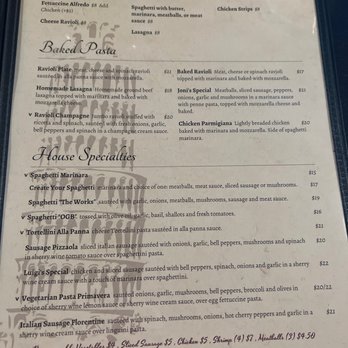 Fettuccine Alfredo $8 Add
Chicken (+$6)
Cheese Ravioli $8
Spaghetti with butter,
marinara, meatballs, or meat
sauce $8
Lasagna $8
Chicken Strips $8
Baked Pasta
Ravioli Plate meat, cheese and spinach ravioli $21
sautéed in alla panna sauce with mozzarella.
Homemade Lasagna Homemade ground beef $18
lasagna topped with marinara and baked with
mozzarella.
v Ravioli Champagne Jumbo ravioli filled with $20
ricotta and spinach, sautéed with fresh onions, garlic,
bell peppers and spinach in a champagne cream sauce.
Baked Ravioli Meat, cheese or spinach ravioli $17
topped with marinara and baked with mozzarella.
Joni's Special Meatballs, sliced sausage, peppers, $21
onions, garlic and mushrooms in a marinara sauce
with penne pasta, topped with mozzarella cheese and
baked.
Chicken Parmigiana Lightly breaded chicken $20
baked with marinara and mozzarella. Side of spaghetti
marinara.
House Specialties
v Spaghetti Marinara $15
Create Your Spaghetti marinara and choice of one: meatballs, meat sauce, sliced sausage or mushrooms. $17
Spaghetti "The Works" sautéed with onions, meatballs, mushrooms, sausage and meat sauce. $19
v Spaghetti "OGB" tossed with olive oil, garlic, basil, shallots and fresh tomatoes. $16
v Tortellini Alla Panna cheese Tortellini pasta sautéed in alla panna sauce. $21
Sausage Pizzaola sliced Italian sausage sautéed with onions, garlic, bell peppers, mushrooms and spinach $20
in sherry wine tomato sauce over spaghetti pasta.
Luigi's Special chicken and sliced sausage sautéed with bell peppers, spinach, onions and garlic in a sherry $22
wine cream sauce with a hint of marinara over spaghettini.
v Vegetarian Pasta Primavera sautéed onions, garlic, mushrooms, bell peppers, broccoli and olives in $20/22
choice of sherry wine lemon sauce or sherry wine cream sauce, over egg fettuccine pasta.
Italian Sausage Florentine sautéed with spinach, mushrooms, onions, hot cherry peppers and garlic in a $21
sherry wine cream sauce over linguini pasta.
$4, Sliced Sausage $5, Chicken $5, Shrimp (4) $7, Meatballs (3) $4.50